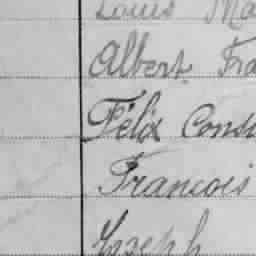 Louis Ma
Albert Fra
Félix Const
François
Joseph